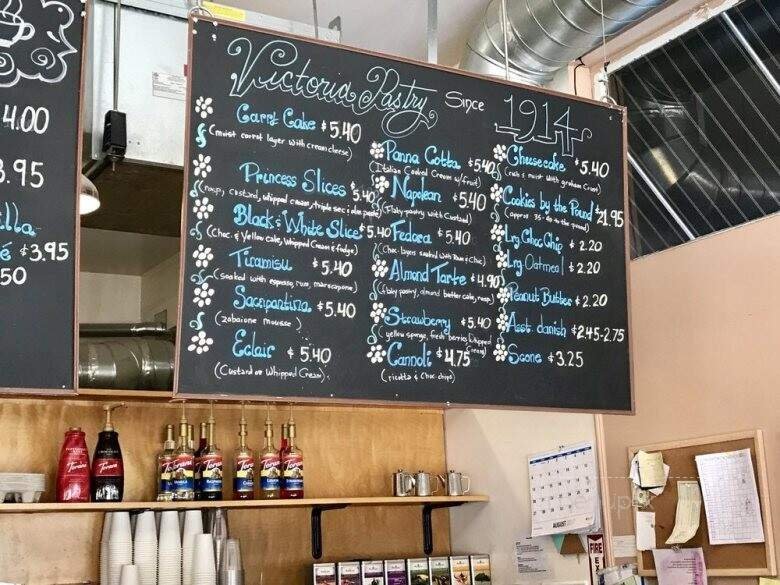 Victoria Pastry Since 1914
Carrot Cake $5.40
(moist carrot layer with cream cheese)
Princess Slices $5.40
(rasp, custard, whipped cream, triple sec & alm paste)
Black & White Slice $5.40
(Choc. & Yellow cake, Whipped Cream & fudge)
Tiramisu $5.40
(soaked with espresso, rum, marscapone)
Sacripantina $5.40
(zabaione mousse)
Eclair $5.40
(Custard or Whipped Cream)
Panna Cotta $5.40
(Italian Cooked Cream w/fruit)
Napolean $5.40
(Flaky pastry with Custard)
Fedora $5.40
(Choc layers soaked with Rum & Choc)
Almond Tarte $4.90
(flaky pastry, almond butter cake, rasp)
Strawberry $5.40
(yellow sponge, fresh berries, whipped cream)
Cannoli $4.75
(ricotta & choc. chips)
Cheesecake $5.40
(rich & moist with graham Crust)
Cookies by the Pound $21.95
(approx 35 to the pound)
Lrg Choc Chip $2.20
Lrg Oatmeal $2.20
Peanut Butter $2.20
Asst. danish $2.45-2.75
Scone $3.25
4.00
3.95
illa
é $3.95
50
Torani
Torani
Torani
Torani
Torani
Torani
Torani
AUGUST
FIRE